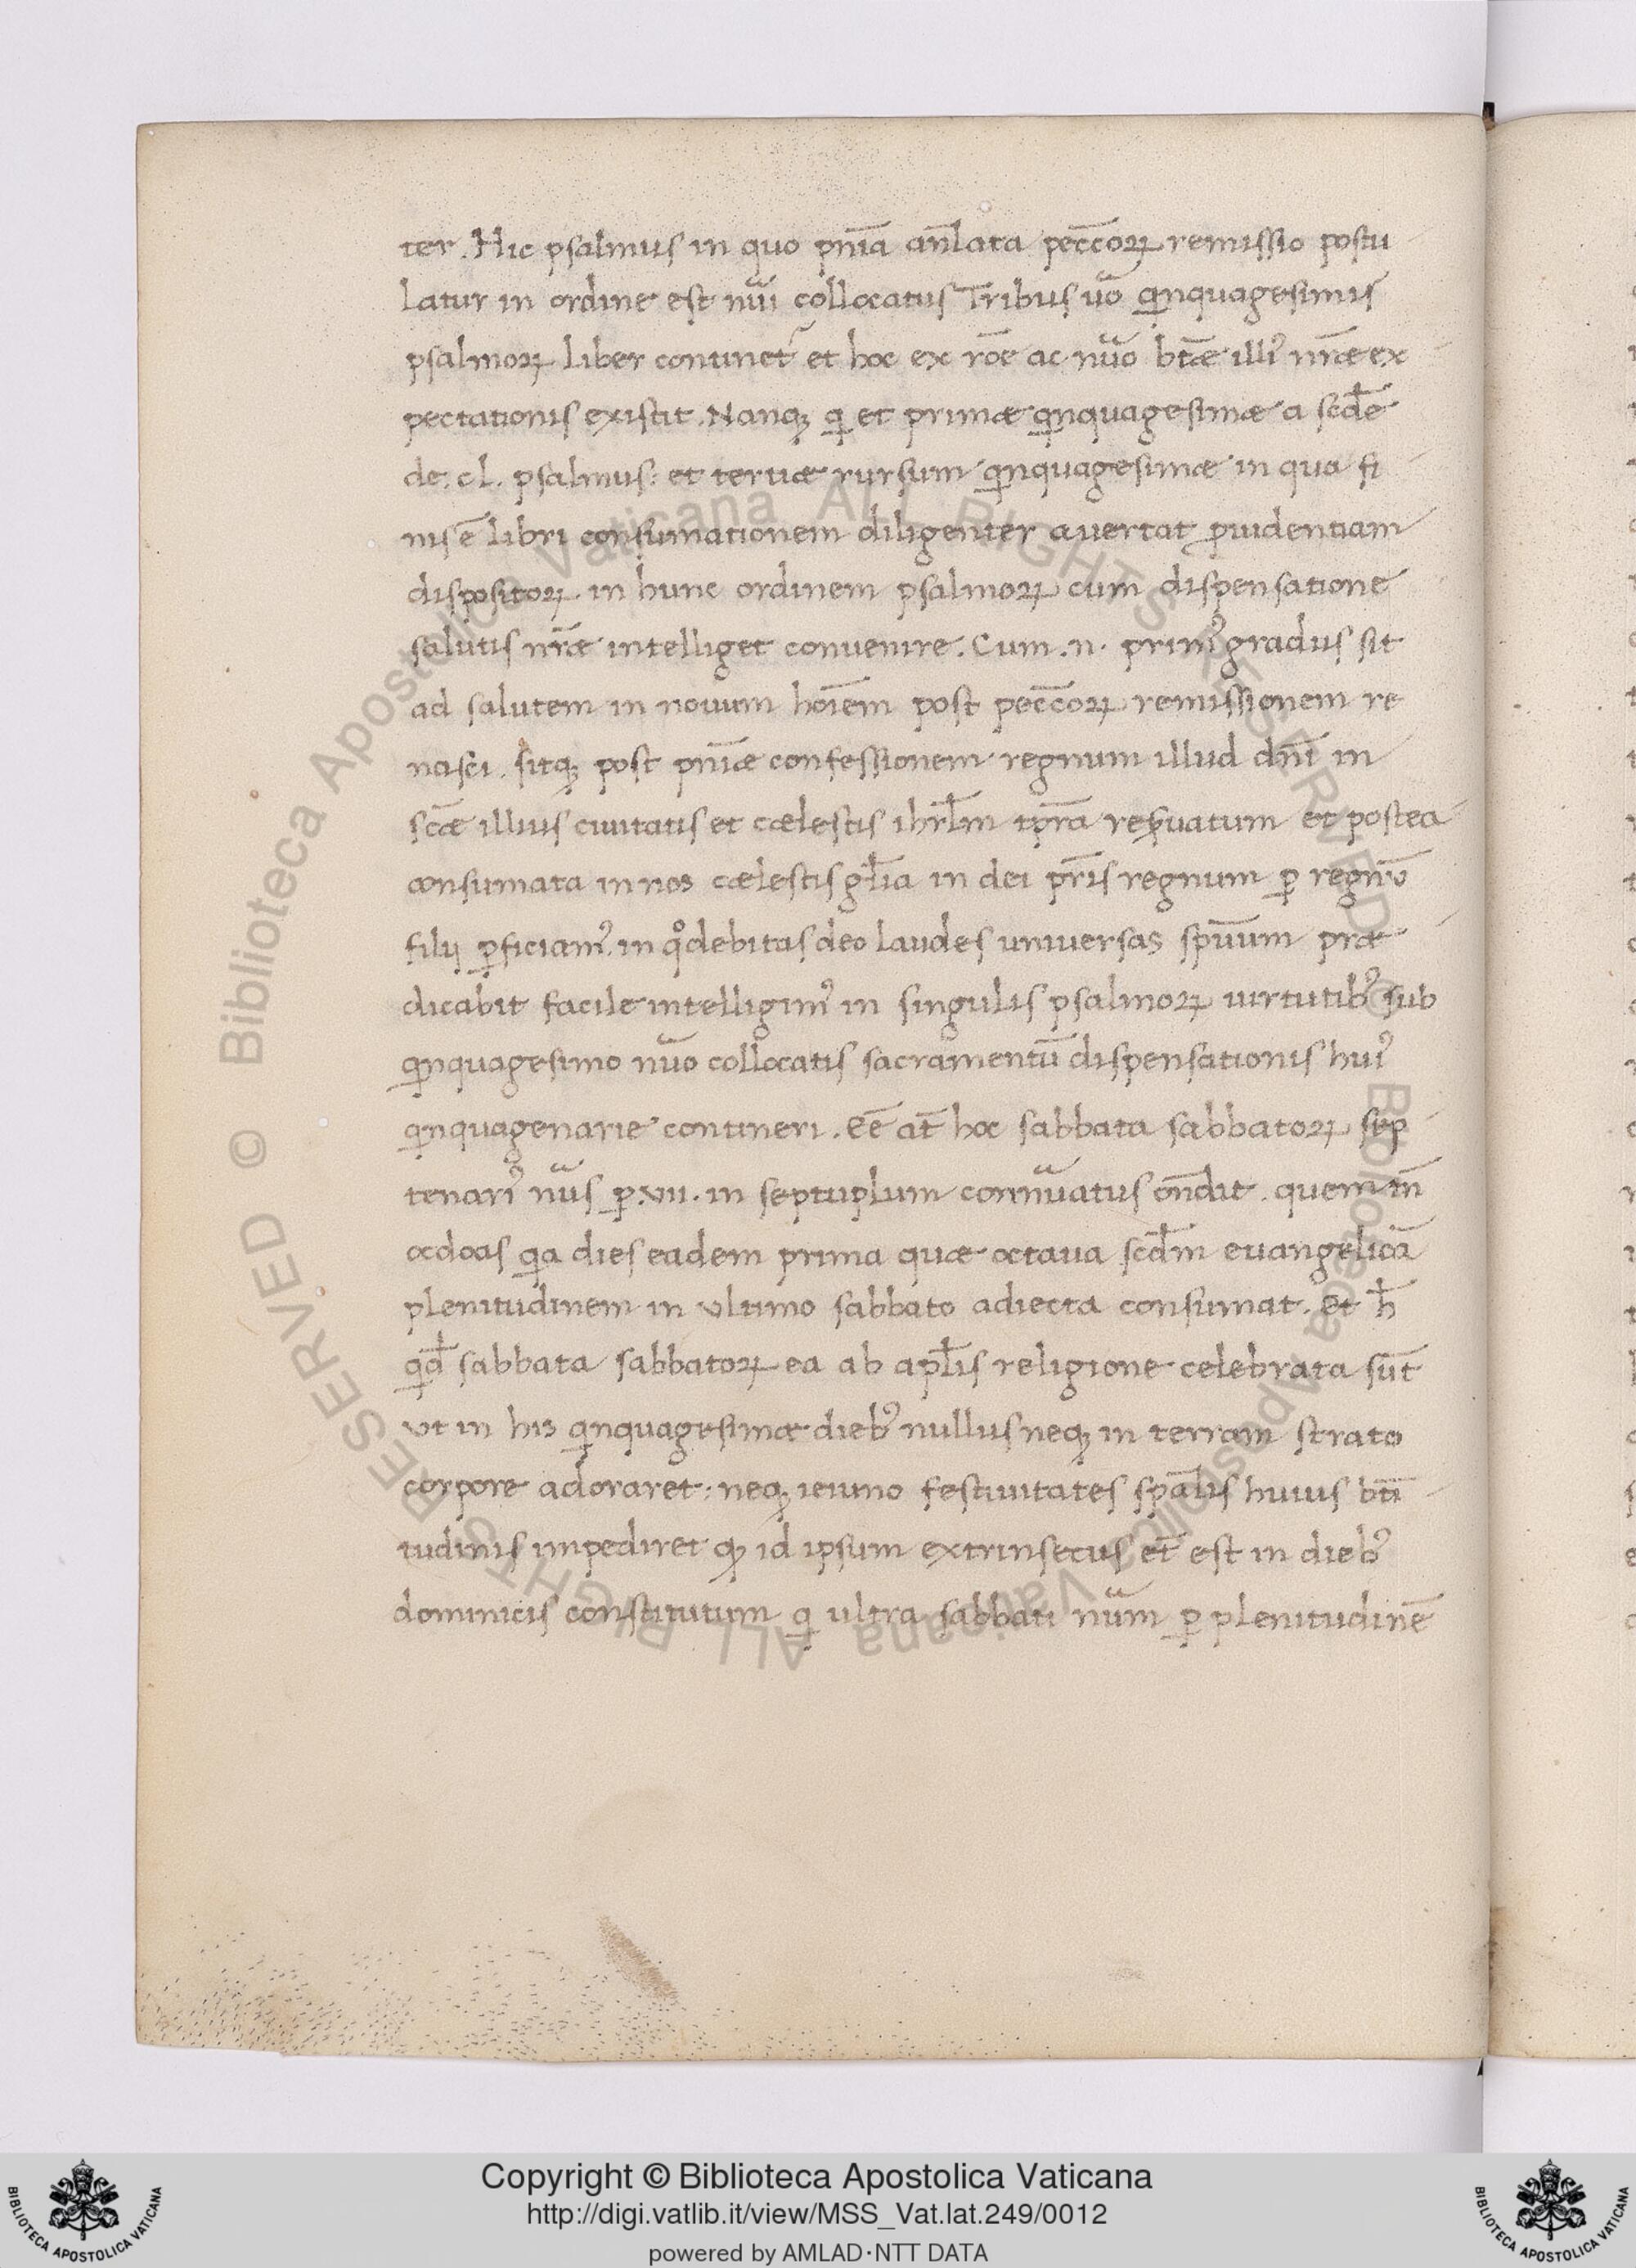 ter. Hic psalmus in quo pnīa anlata peccoꝝ remissio postu
latur in ordine est nūi collocatus Tribus uo qnquagesimis
psalmoꝝ Liber continet et hoc ex roe ac nūo btæ illiꝰ nræ ex
pectationis existit. Nanqꝫ qi et primæ qnquagesimæ a scde
de. cl. psalmus: et tertiæ rursum qnquagesimæ in qua fi
nis ē libri consumationem diligenter auertat ꝓuidentiam
dispositoꝝ in hunc ordinem psalmoꝝ cum dispensatione
salutis nræ intelliget conuenire. Cum .n. primꝰ gradus sit
ad salutem in nouum hoīem post peccoꝝ remissionem re
nasci. sitqꝫ post pnīæ confessionem regnum illud dnī in
scæ illius ciuitatis et cælestis ihrlm tpra reseruatum et postea
consumata in nos cælestis glīa in dei pris regnum ꝑ regnū
filij ꝑficiamꝰ. in qͦ debitas deo laudes uniuersas spūum præ
dicabit facile intelligimꝰ in singulis psalmoꝝ uirtutibꝰ sub
qnquagesimo nūo collocatis sacramentū dispensationis huiꝰ
qnquagenarie contineri. Eē at hoc sabbata sabbatoꝝ sep
tenariꝰ nūs ꝑ .vii. in septuplum connūatus ondit. quem tn
ocdoas qa dies eadem prima quæ octaua scdm euangelicā
plenitudinem in vltimo sabbato adiecta consumat. Et h
qd sabbata sabbatoꝝ ea ab aplis religione celebrata sūt
vt in his qnquagesimæ diebꝰ nullus neqꝫ in terram strato
corpore adoraret: neqꝫ ieiuno festiuitates spalis huius bti
tudinis impediret qꝫ id ipsum extrinsecus et est in diebꝰ
dominicis constitutum qi ultra sabbati nūm ꝑ plenitudinē
© Biblioteca Apostolica Vaticana ALL RIGHTS RESERVED
© Biblioteca Apostolica Vaticana ALL RIGHTS RESERVED
Copyright © Biblioteca Apostolica Vaticana
http://digi.vatlib.it/view/MSS_Vat.lat.249/0012
powered by AMLAD·NTT DATA
BIBLIOTECA APOSTOLICA VATICANA
BIBLIOTECA APOSTOLICA VATICANA